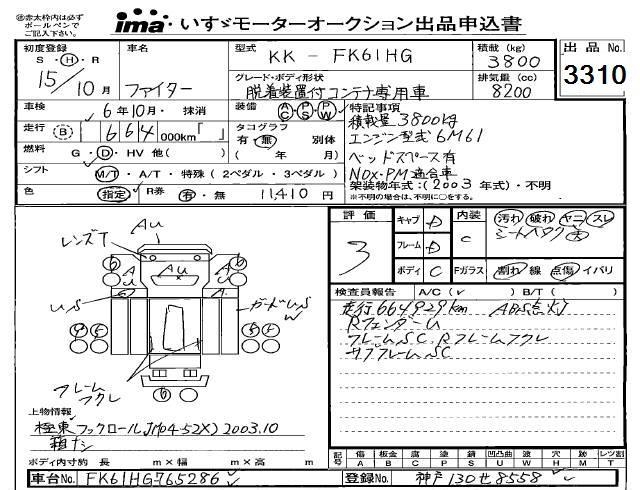 ㊟赤太枠内は必ず
ボールペンで
ご記入下さい。
ima いすゞモーターオークション出品申込書
初度登録
S・H・R
15/10月
車名
ファイター
型式 KK-FK61HG
積載(kg)
3800
出品No.
3310
グレード・ボディ形状
脱着装置付コンテナ専用車
排気量(cc)
8200
車検 6年10月・抹消
装備 AC PS PW
特記事項
積載量3800kg
エンジン型式6M61
ベッドスペース有
NOx・PM適合車
走行 B 664 000km「 」
タコグラフ 別体
有・無 ( 年 月)
燃料 G・D・HV 他( )
シフト M/T・A/T・特殊(2ペダル・3ペダル)
架装物年式:(2003年式)・不明
※不明の場合は、不明に○をする。
色 指定 R券 有・無 11,410円
評価
3
キャブ D
フレーム D
ボディ C
内装
C
Fガラス
汚れ 破れ ヤニ スレ
割れ 線 点傷 イバリ
レンズT
Au
Au
A
U
A
U
A
US
ガードUS
W
フレーム
フクレ
6
6
4
4
5
4
6
検査員報告 A/C( ) B/T( )
走行664929km ABS点灯
RフェンダーU
フレームSC. Rフレームフクレ
サブフレームSC
上物情報
極東フックロールJM04-52X)2003.10
箱ナシ
ボディ内寸約 長 m×幅 m×高 m
記号 傷 板金 腐 塗 錆 凹凸曲 波 穴 跡 レツ割
A B C P S U W H M T
車台No. FK61HG765286
登録No. 神戸130せ8558